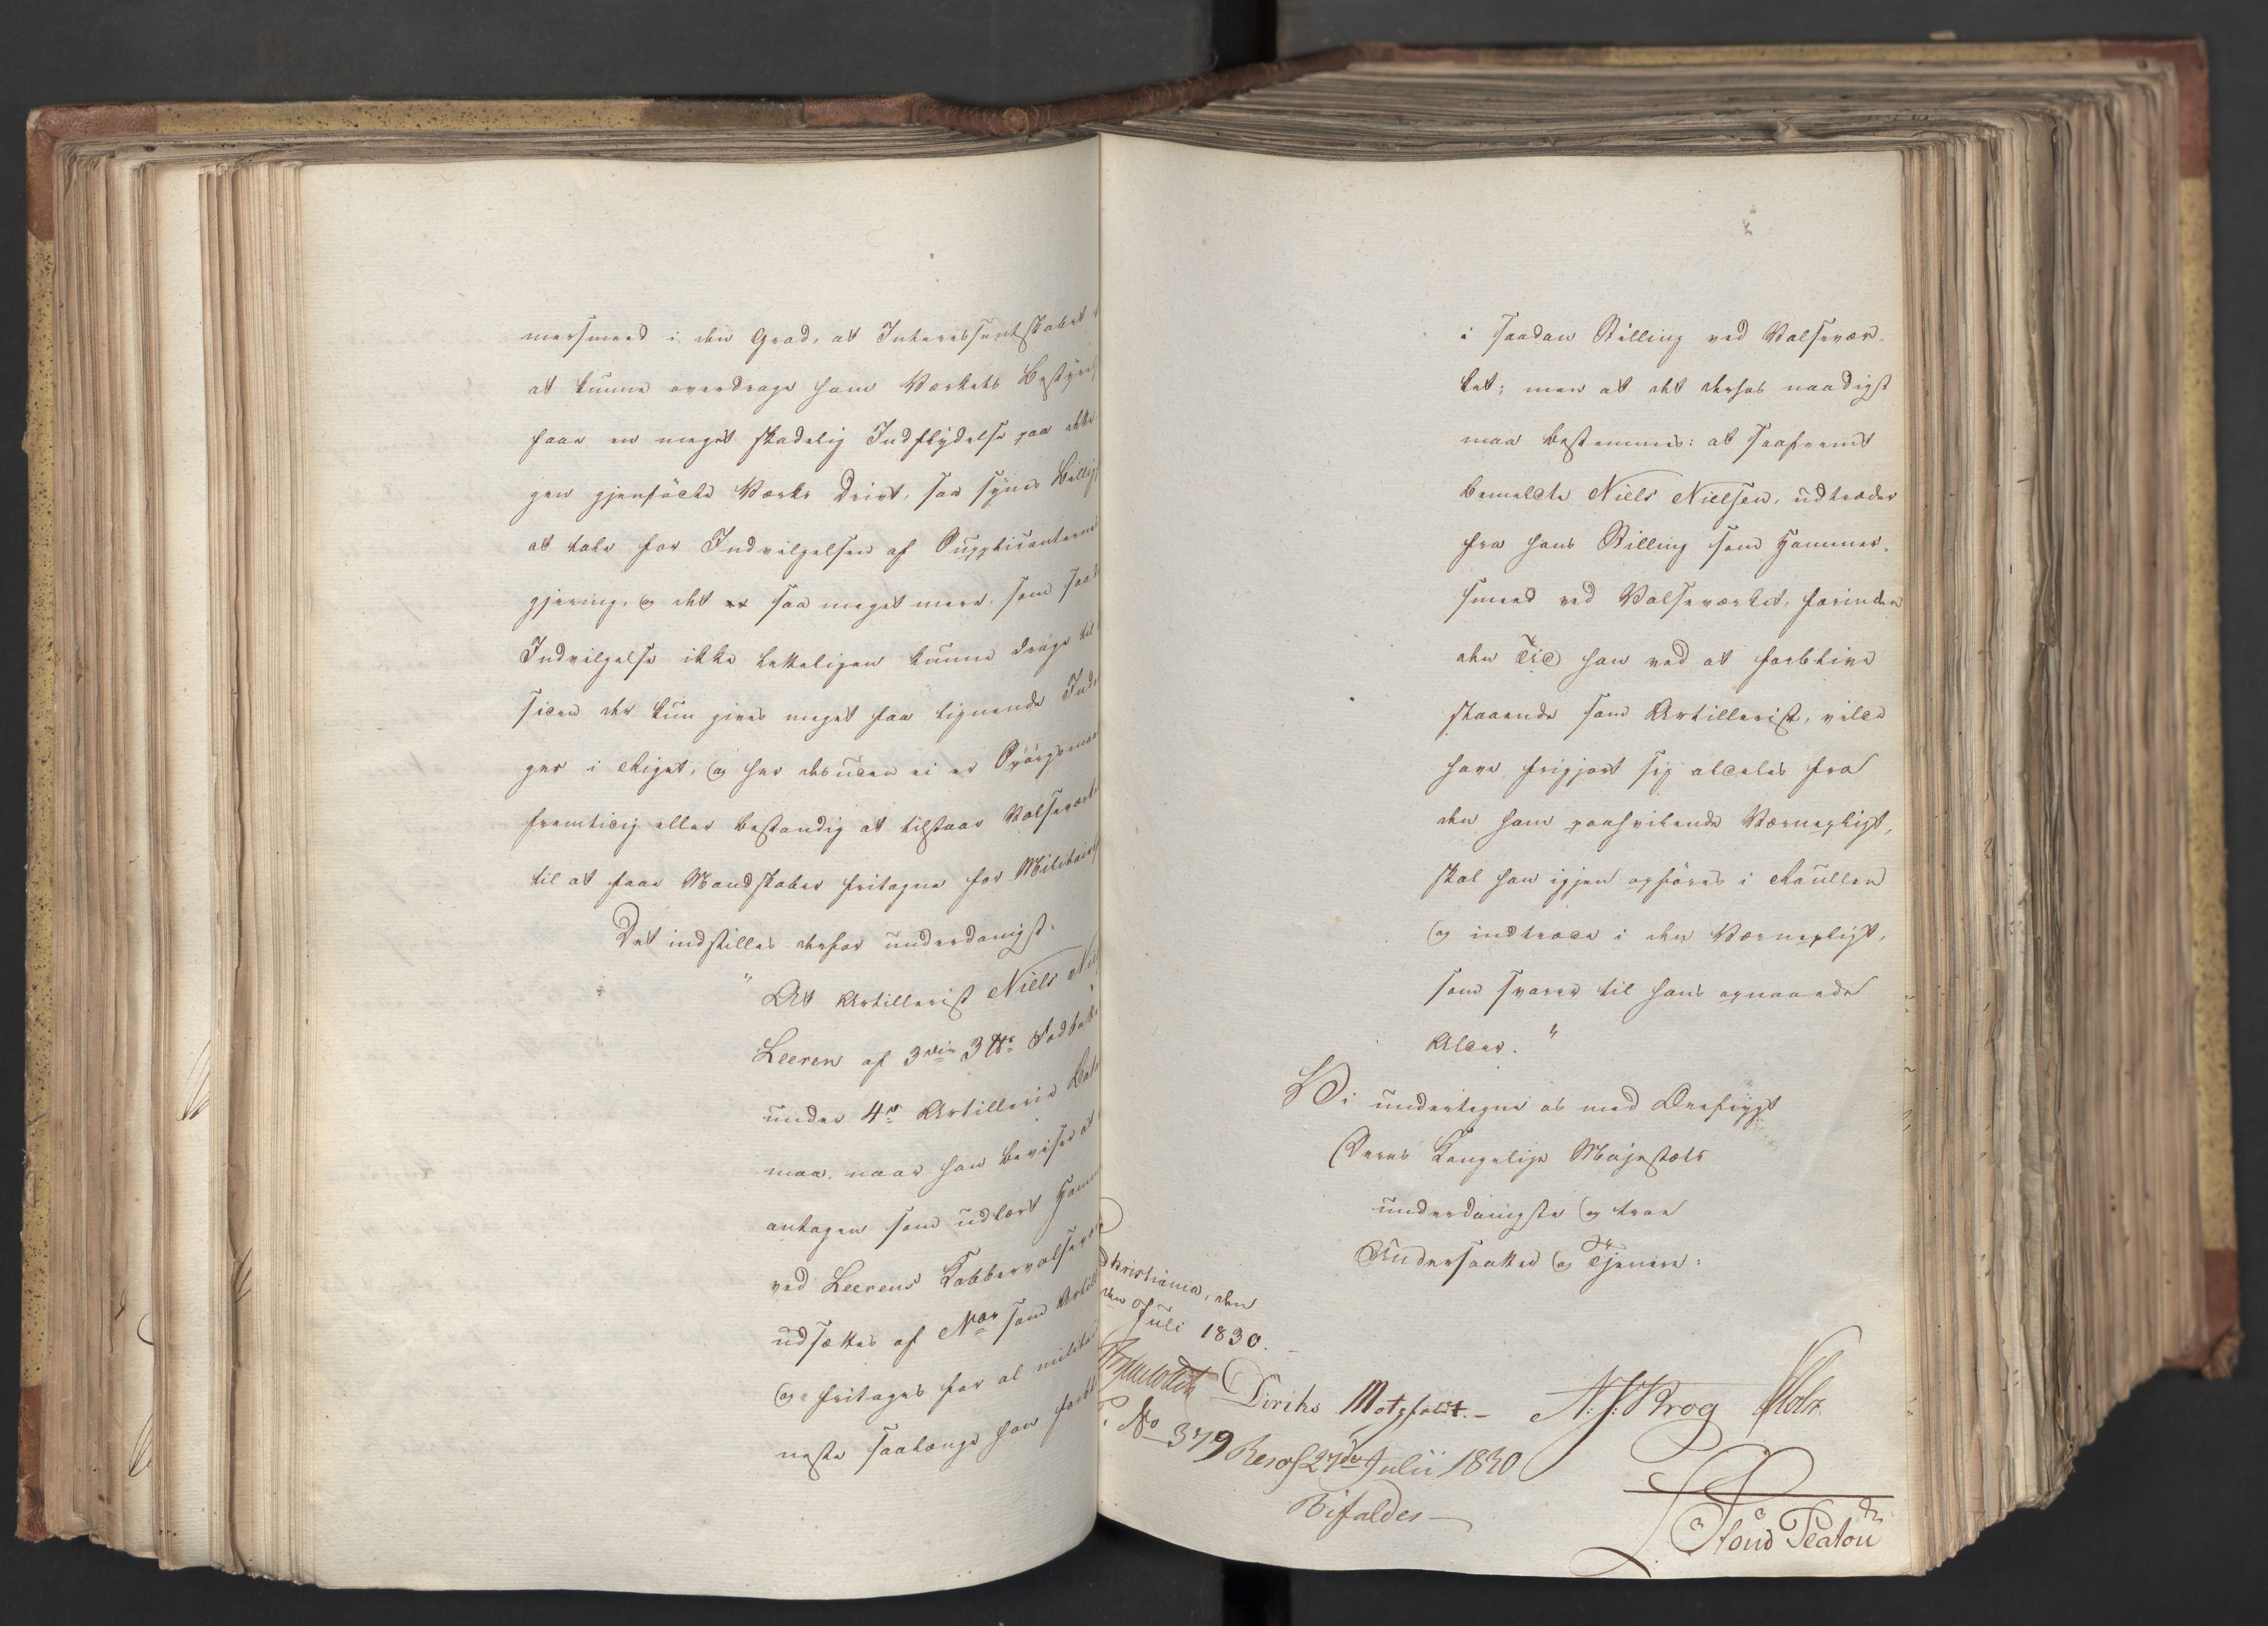 mersmed i den Grad, at Interessentskabet
at kunne overdrage ham Værkets Bestyrel
faae en meget skadelig Indflydelse paa dette
gen gjenføcte Værks Drivt, saa synes Billig
at tale for Indvilgelsen af Supplicanternes
gjæring, og det er saa meget mere, som saad
Indvilgelse ikke letteligen kunne drage til
siden der kun gives meget faa lignende Ind
ger i Riget, og her desuden ei er Spørgsmaa
fremtidig eller bestandig at tilstaae Valseværk
til at faae Mandskaber fritagne for Militair
Det indstilles derfor underdanigst:
"At Artillerist Niels Niel
Leeren af 3die 3 ₶s Fodbatt
under 4de Artillerie Bat
maa, naar han beviser at
antagen som udlært Hamm
ved Leerens Kobbervalsevær
udsættes af No som Artill
og fritages for al militai
neste saalænge han forbl
i saadan Stilling ved Valsevær-
ket; men at det derhos naadigst
maa bestemmes: at saafremt
bemeldte Niels Nielsen, udtræder
fra hans Stilling som Hammer-
smed ved Valseværket, forinden
den Tid han ved at forblive
staaende som Artillerist, vilde
have frigjort sig aldeles fra
den ham paahvilende Værnepligt,
skal han igjen opføres i Rullen
og indtræde i den Værnepligt,
som svarer til hans opnaaede
Alder."
Vi undertegne os med Ærefrygt
Deres Kongelige Majestæts
underdanigste og troe
Undersaatter og Tjenere:
Christiania, den
den Juli 1830.
Diriks Motzfeldt. N. J. Krog Holst
No 379 Resol 27de Julii 1830
Bifaldes